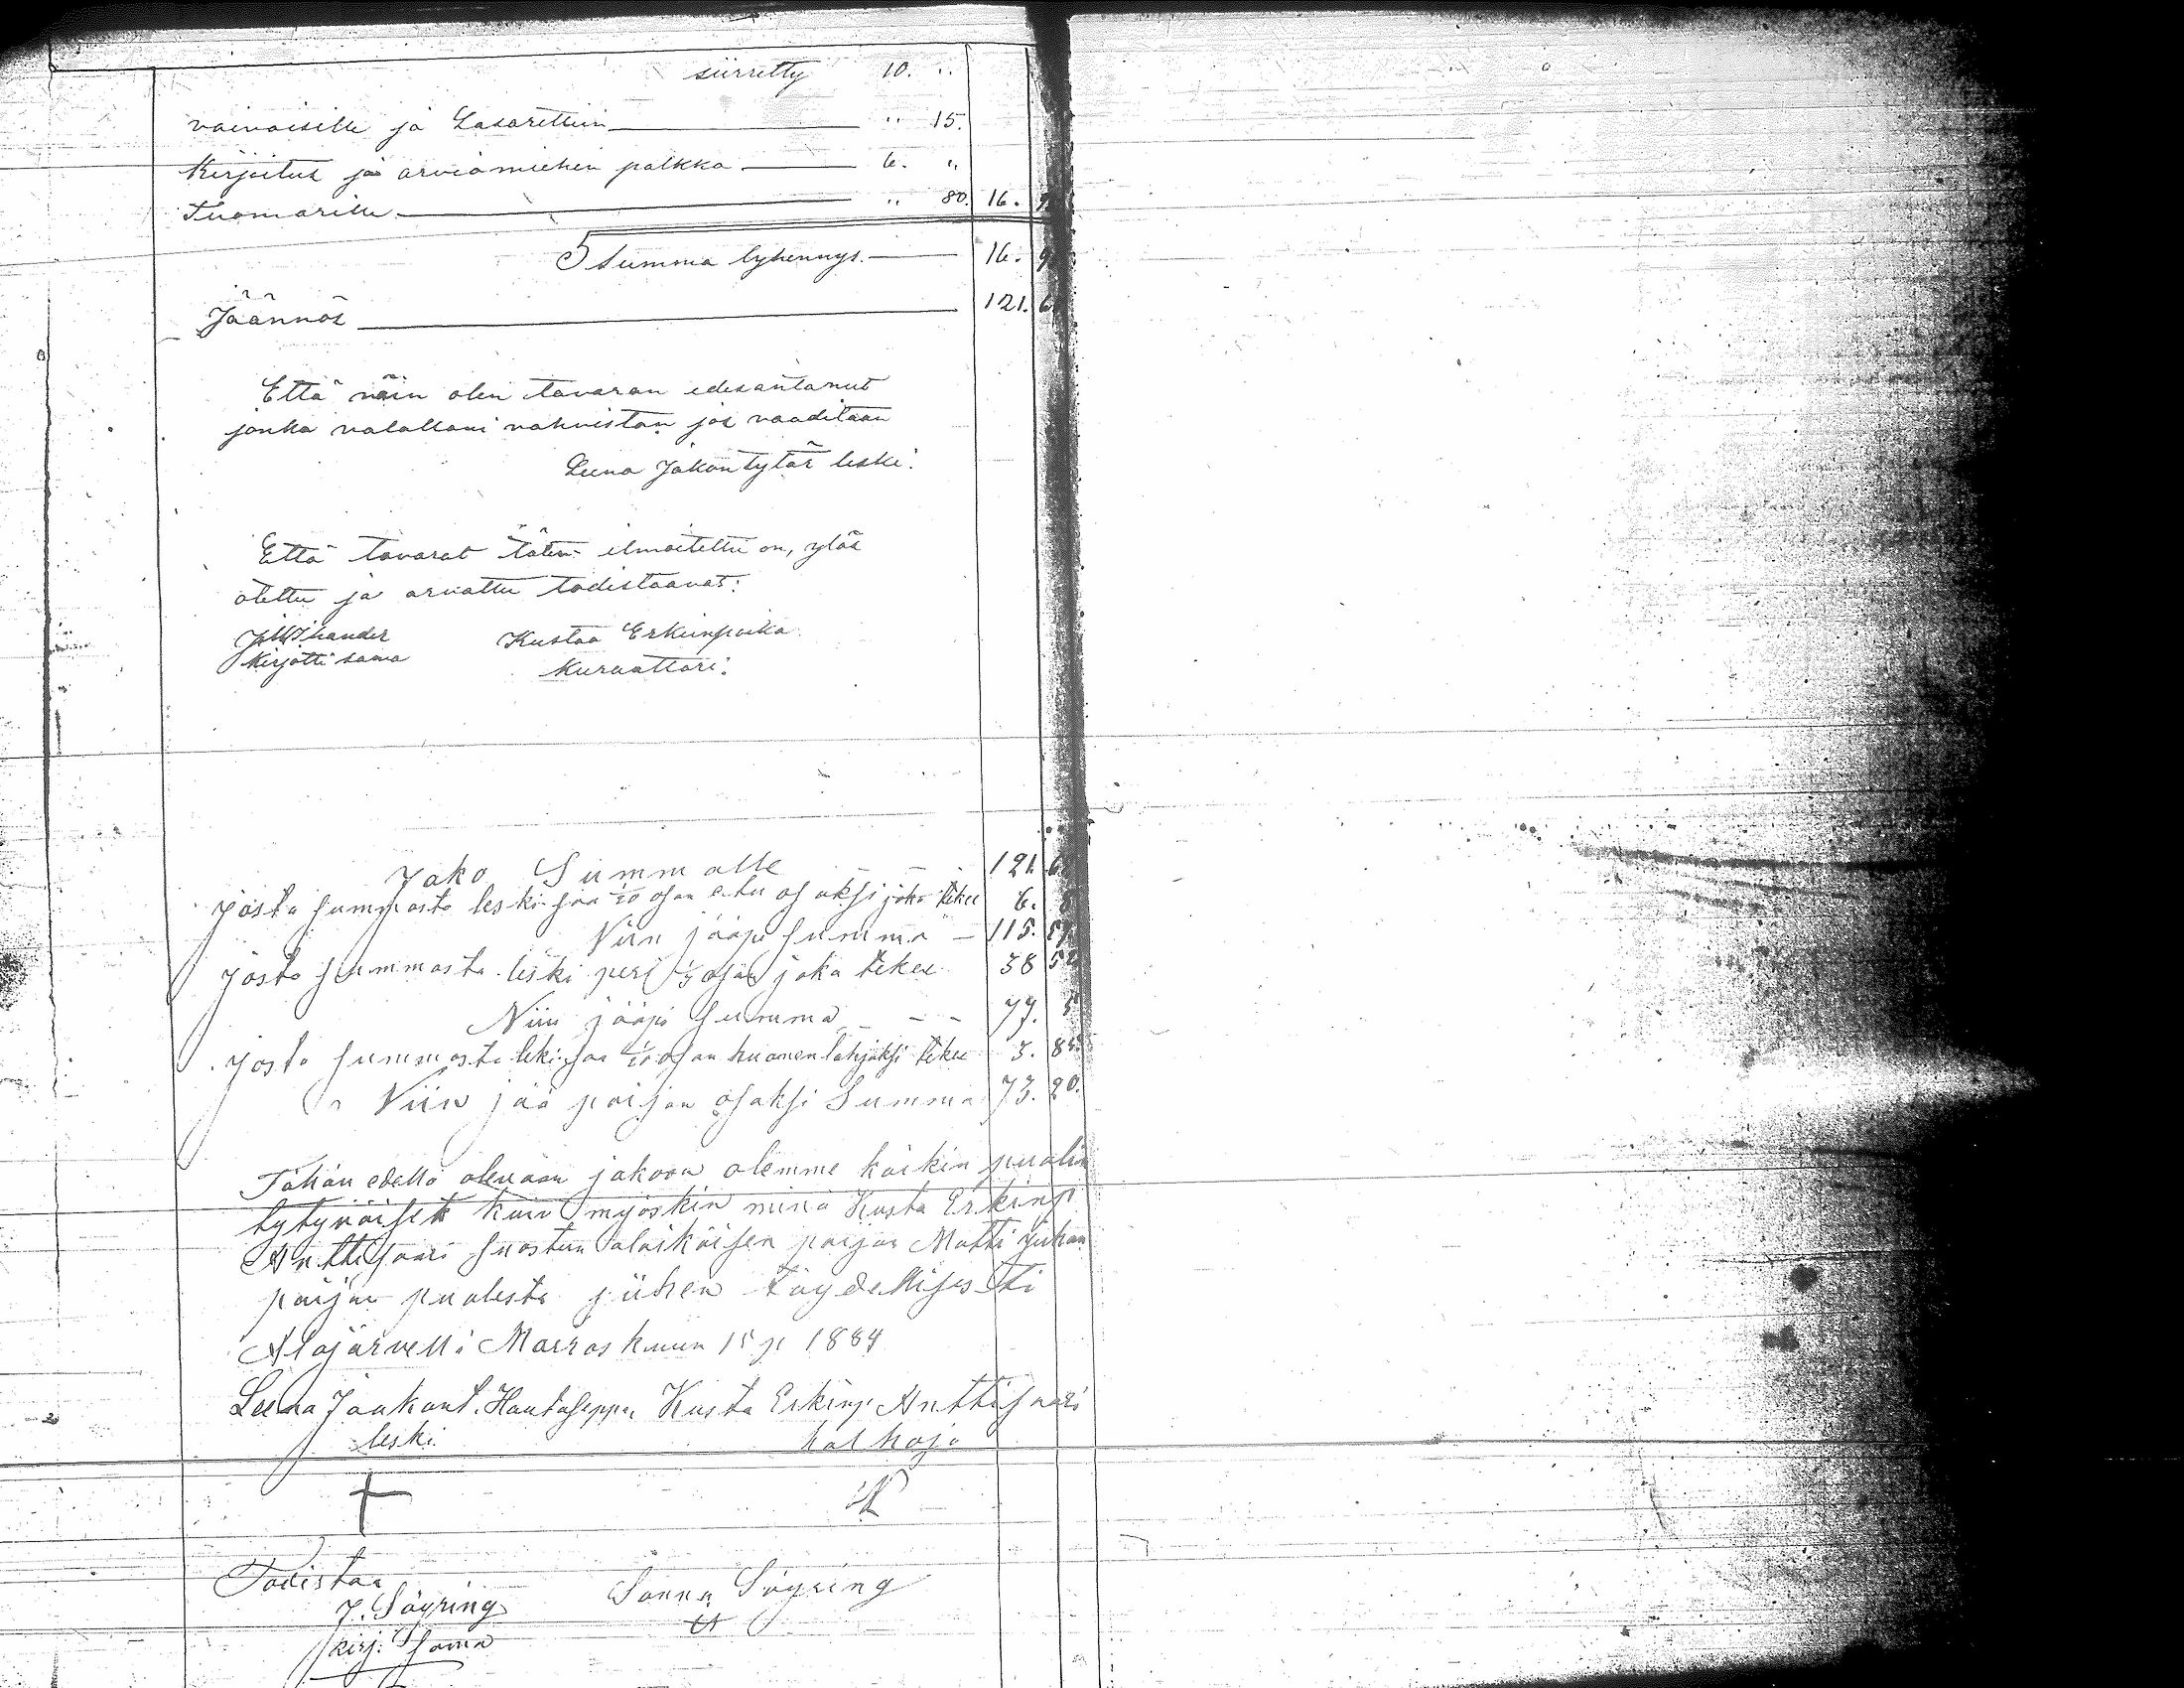 siirretty 10. "
vaivaisille ja Lasarettiin " 15.
Kirjoitus ja arviomiehen palkka 6. "
Tuomarille " 80. 16. 9
Summa lyhennys. 16. 9
Jäännös 121. 6
Että näin olen tavaran edesantanut
jonka valallani vahvistan jos vaaditaan
Leena Jakontytär leski.
Että tavarat täten ilmoitettu on, ylös
otettu ja arvattu todistaavat:
Kustaa Erkinpoika
Kirjotti sama kuraattori.
Jako Summalle 121. 6
josta summasta leski saa 1/20 osan etu osaksi joka tekee 6. 8
Niin jääpi summa 115. 57
josta summasta leski peri 1/3 osan joka tekee 38 52
Niin jääpi summa 77. 5
josta summasta leki saa 1/20 osan huomenlahjaksi tekee 3. 85
Niin jää poijan osaksi Summa 73. 20.
Tähän edellä olevaan jakoon olemme kaikin puolin
tytyväiset kuin myöskin minä Kusta Erkinp.
Anttisaari suostun alaikäisen poijan Matti Juhan
poijan puolesta siihen täydellisesti
Alajärvellä Marraskuun 15 p 1884
Leena Jaakont. Hautaseppä Kusta Erkinp. Anttisaari
leski holhoja
Todistaa
J. Söyring Sanna Söyring
kirj. Sama